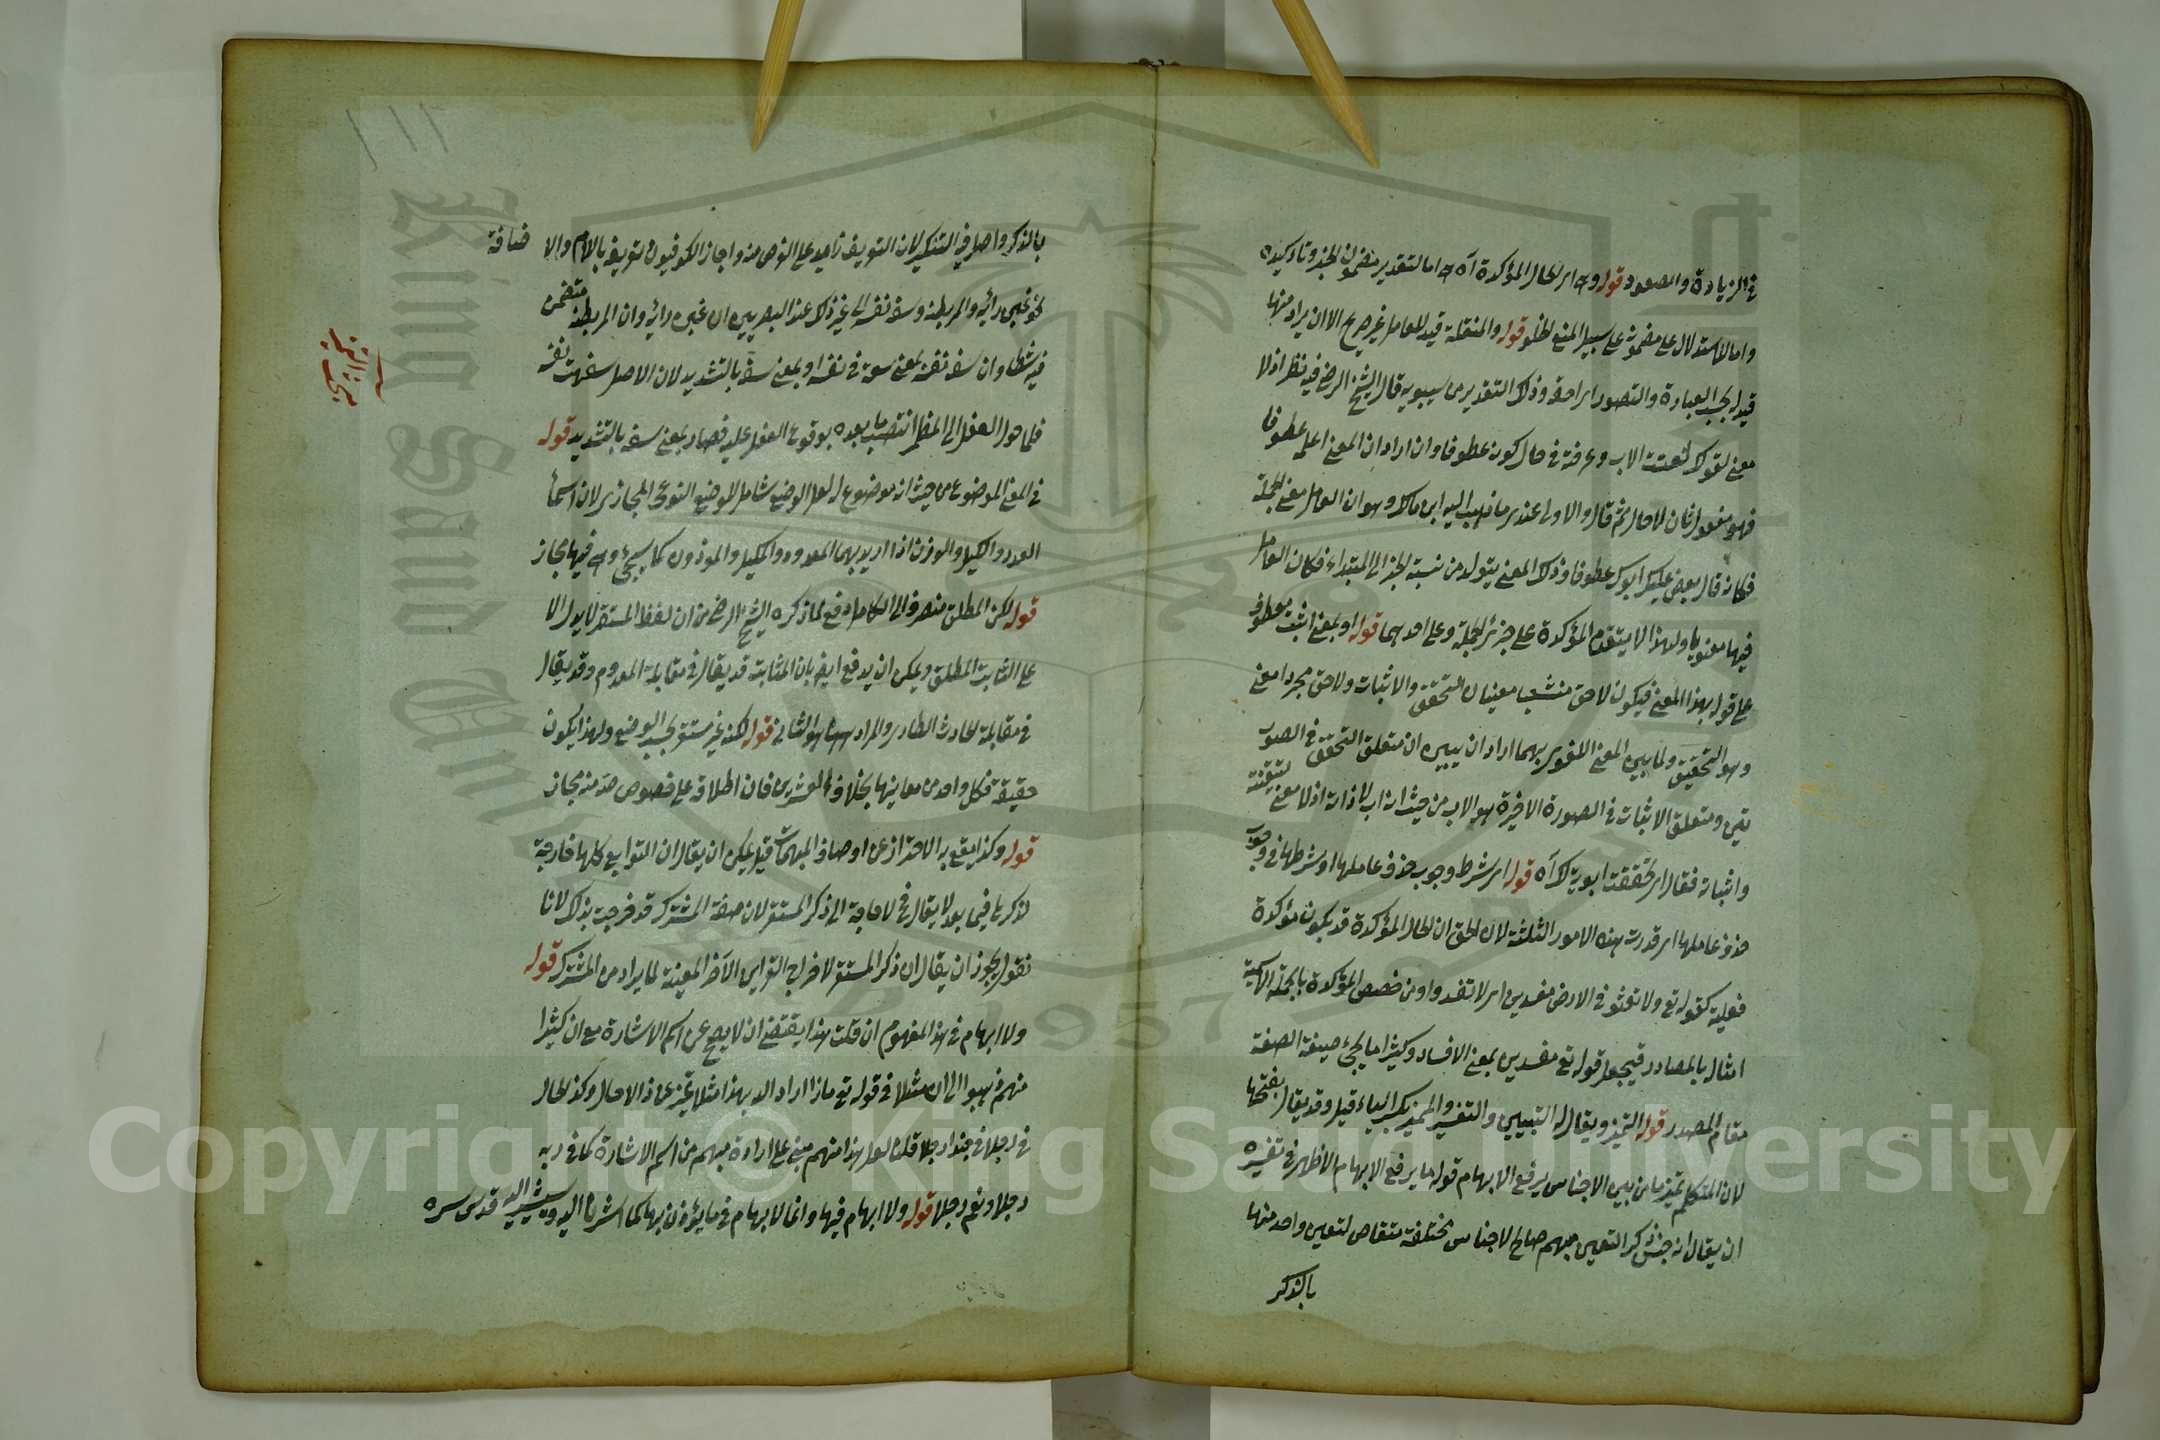 في الزيادة والصعود قوله وهي اي الحال المؤكدة آه اما لتقدير مضمون الخبر وتأكيده
واما للاستدلال على مضمونه على سبيل المنع للخلو قوله والمنتقلة قيد للعامل غير صريح الا ان يراد منها
قيد له بحسب العبارة والتصور اي احقه وذلك التقدير من سيبويه قال الشيخ الرضي فيه نظر اذ لا
معنى لقولك تيقنت الاب وعرفته في حال كونه عطوفا وان اراد ان المعنى اعلمه عطوفا
فهو مفعول ثان لا حال ثم قال والاولى عندي ما ذهب اليه ابن مالك وهو ان العامل معنى الجملة
فكانه قال يعطف عليك ابوك عطوفا وذلك المعنى يتولد من نسبة الخبر الى المبتداء فكان العامل
فيها معنويا ولهذا لا يتقدم المؤكدة على جزئي الجملة وعلى احدهما قوله او بمعنى اثبت معطوف
على قوله بهذا المعنى فيكون لاحق منشعبا معنيان التحقق والاثبات ولاحق مجردا معنى
وهو التحقيق ولما بين المعنى اللغوي بهما اراد ان يبين ان متعلق التحقق في الصورتين
ومتعلق الاثبات في الصورة الاخيرة هو الاب من حيث انه اب لا ذاته اذ لا معنى لتيقنه
واثباته فقال اي تحققت ابوته لك آه قوله اي شرط وجوب حذف عاملها او شرطها في وجوب
حذف عاملها اي قدرت هذه الامور الثلثة لان الحق ان الحال المؤكدة قد يكون مؤكدة
فعلية كقوله تع ولا تعثوا في الارض مفسدين اي لا تفسدوا ومن خصص المؤكدة بالجملة الاسمية
امثاله بالمصادر فيجعل قوله تع مفسدين بمعنى الافساد وكثيرا ما يجئ صيغة الصفة
مقام المصدر قوله التمييز ويقال له التبيين والتفسير والمميز بكسر الياء قيل وقد يقال بفتحها
لان المتكلم تميزه من بين الاجناس يرفع الابهام قوله ما يرفع الابهام الاظهر في تفسيره
ان يقال انه جنس ذكر لتعيين مبهم صالح لاجناس مختلفة متقاص لتعيين واحد منها
بالذكر
بالذكر واصل في التنكير لان التعريف زايد على الغرض منه واجاز الكوفيون تعريفه باللام والاضافة
نحو غبن رأيه والم بطنه وسفه نفسه الى غير ذلك وعند البصريين ان غبن رأيه وان الم بطنه متضمن
فيه شكا وان سفه نفسه بمعنى سفه في نفسه او بمعنى سفه بالتشديد لان الاصل سفهت نفسه
فلما حول الفعل الى المظهر انتصب ما بعده بوقوع الفعل عليه فصار بمعنى سفه بالتشديد قوله
في المعنى الموضوع من حيث انه موضوع له لعل الوضع شامل للوضع النوعي المجازي لان اسمآ
العدد والكيل والوزن اذا اريد بهما المعدود والمكيل والموزون كما سيجئ وهي فيها مجاز
قوله لكن المطلق منصرف الى الكامل دفع لما ذكره الشيخ الرضي من ان لفظ المستقر لا يدل الا
على الثابت المطلق ويمكن ان يدفع ايضا بان الثابت قد يقال في مقابلة المعدوم وقد يقال
في مقابلة الحادث الطاري والمراد ههنا هو الثاني قوله لكنه غير مستقر بحسب الوضع ولهذا يكون
حقيقة فكل واحد من معانيها بخلاف العشرين فان اطلاقه على خصوص حد منه مجاز
قوله وكذا يقع به الاحتراز عن اوصاف المبهمات قيل يمكن ان يقال ان التوابع كلها خارجة
لذكرها فيما بعد لا يقال فح لا حاجة الى ذكر المستقر لان صفة المشترك قد خرجت بذلك لانا
نقول يجوز ان يقال ان ذكر المستقر لاخراج القراين الآخر المعينة لما يراد من المشترك قوله
ولا ابهام في هذا المفهوم ان قلت هذا يقتضي ان لا يصح عن اسم الاشارة مع ان كثيرا
منهم ذهبوا الى ان مثلا في قوله تع ماذا اراد الله بهذا مثلا تميز عن ذا لا حال وكذا الحال
في رجلا في حبذا رجلا قلنا لعل هذا منهم مبني على ارادة مبهم من اسم الاشارة كما في ربه
رجلا ونعم رجلا قوله ولا ابهام فيها وانما الابهام فيما يؤذن بها كما اشرنا اليه ويشير اليه قدس سره